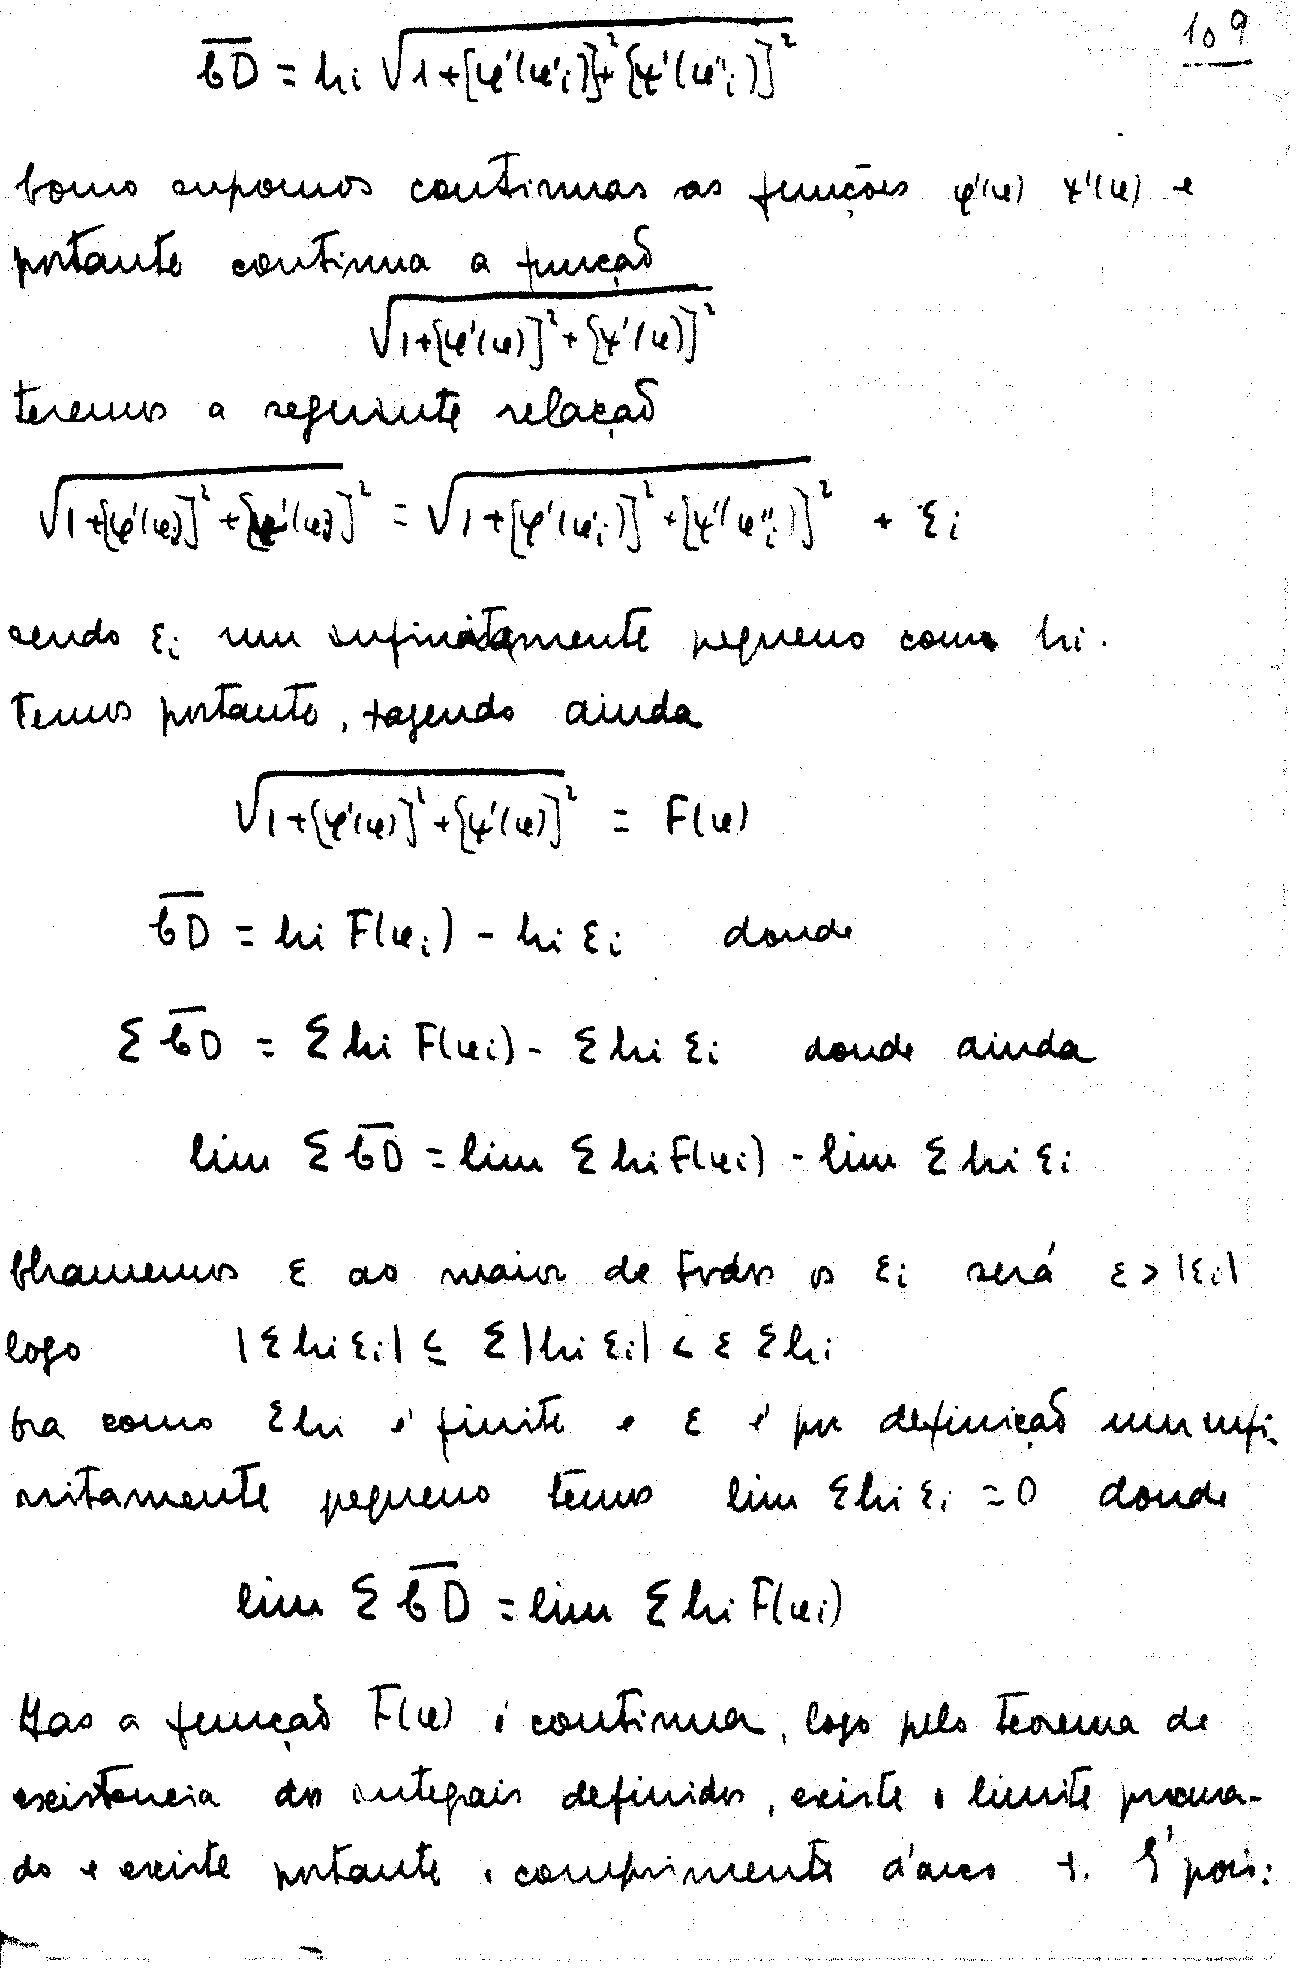 109
C̅D̅ = hi √1+[φ'(u'i)]²+[ψ'(u''i)]²
Como supomos continuas as funções φ'(u) ψ'(u) e
portanto continua a função
√1+[φ'(u)]²+[ψ'(u)]²
teremos a seguinte relação
√1+[φ'(ui)]²+[ψ'(ui)]² = √1+[φ'(u'i)]²+[ψ'(u''i)]² + εi
sendo εi um infinitamente pequeno como hi.
Temos portanto, fazendo ainda
√1+[φ'(u)]²+[ψ'(u)]² = F(u)
C̅D̅ = hi F(ui) - hi εi donde
Σ C̅D̅ = Σ hi F(ui) - Σ hi εi donde ainda
lim Σ C̅D̅ = lim Σ hi F(ui) - lim Σ hi εi
Chamemos ε ao maior de todos os εi será ε > |εi|
logo |Σ hi εi| ≤ Σ |hi εi| < ε Σ hi
Ora como Σ hi é finito e ε é por definição um infi-
nitamente pequeno temos lim Σ hi εi = 0 donde
lim Σ C̅D̅ = lim Σ hi F(ui)
Mas a função F(u) é continua, logo pelo teorema de
existencia dos integrais definidos, existe o limite procura-
do e existe portanto o comprimento d'arco f. É pois: